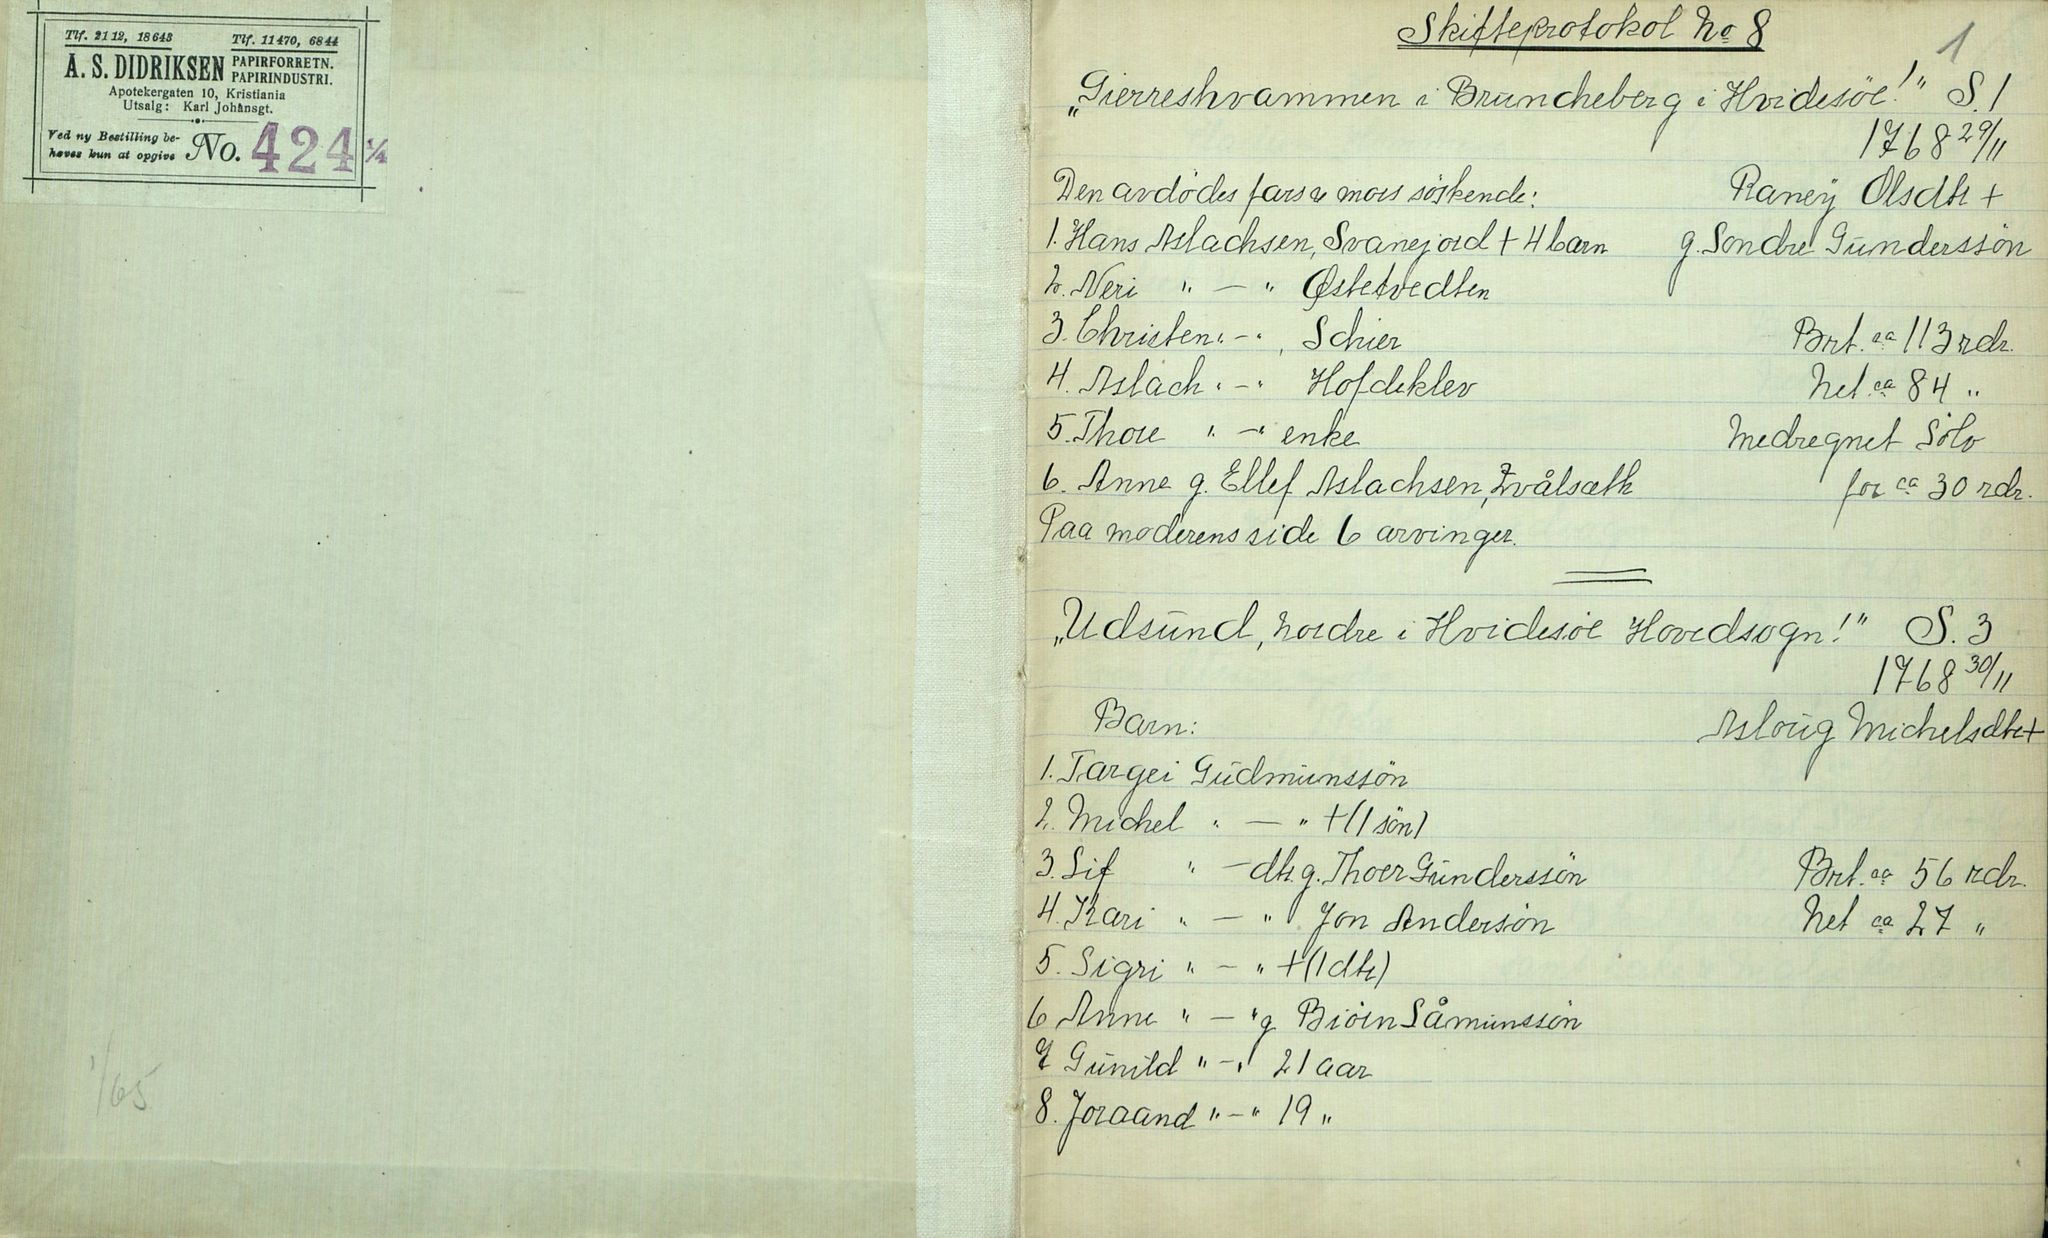 Tlf. 2112, 18643 Tlf. 11470, 6844
A. S. DIDRIKSEN PAPIRFORRETN.
PAPIRINDUSTRI.
Apotekergaten 10, Kristiania
Utsalg: Karl Johansgt.
Ved ny Bestilling be-
høves kun at opgive No. 424 1/4
1/65
Skifteprotokol No 8
1
„Gierreshvammen i Bruncheberg i Hvidesöe!" S. 1
1768 29/11
Den avdödes fars & mors söskende: Raney Olsdtr +
1. Hans Aslachsen, Svanejord + 4 barn g. Sondre Gunderssön
2. Neri " — " Østetvedten
3. Christen " — " , Schier Brt. ca 113 rdr.
4. Aslach " — " Hofdeklev Net ca 84 "
5. Thore " — " enke Medregnet Sölv
6. Anne g. Ellef Aslachsen, Kvålsæth for ca 30 rdr.
Paa moderens side 6 arvinger.
„Udsund, nordre i Hvidesöe Hovedsogn!" S. 3
1768 30/11
Barn: Asloug Michelsdtr +
1. Targei Gudmunssön
2. Michel " — " + (1 sön)
3. Sif " — dtr. g. Thoer Gunderssön Brt. ca 56 rdr.
4. Kari " — " Jon Andersön Net ca 27 "
5. Sigri " — " + (1 dtr)
6 Anne " — " g Biörn Såmunssön
7 Gunild " — " 21 aar
8. Joraand " — " 19 "